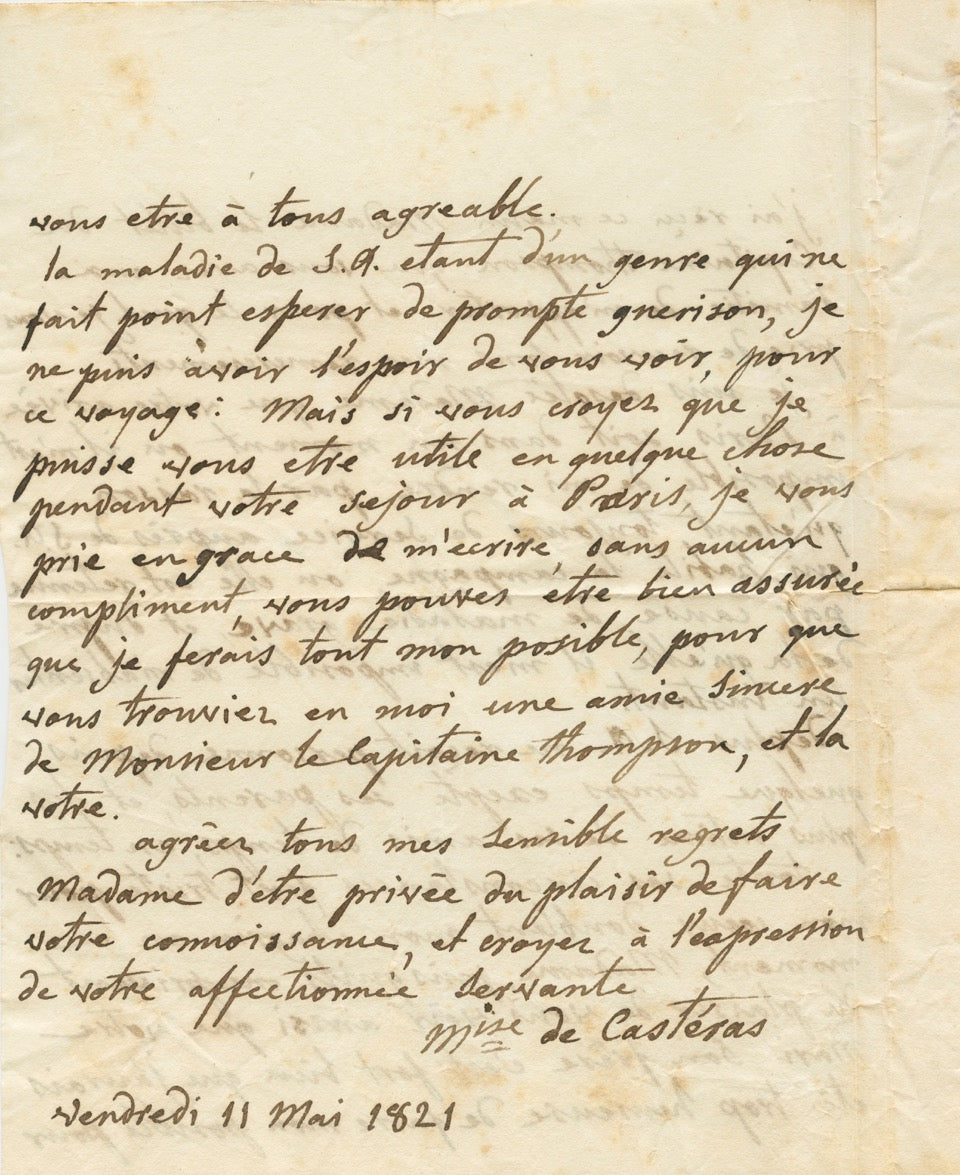 vous etre à tous agreable.
la maladie de S.A. etant d'un genre qui ne
fait point esperer de prompte guerison, je
ne puis avoir l'espoir de vous voir, pour
ce voyage: Mais si vous croyez que je
puisse vous etre utile en quelque chose
pendant votre sejour à Paris, je vous
prie en grace de m'ecrire, sans aucun
compliment, vous pouves être bien assurée
que je ferais tout mon posible, pour que
vous trouviez en moi une amie sincere
de Monsieur le Capitaine Thompson, et la
votre.
agrèez tous mes sensible regrets
Madame d'etre privée du plaisir de faire
votre connoissance, et croyez à l'expression
de votre affectionnée servante
Mise de Castéras
vendredi 11 Mai 1821